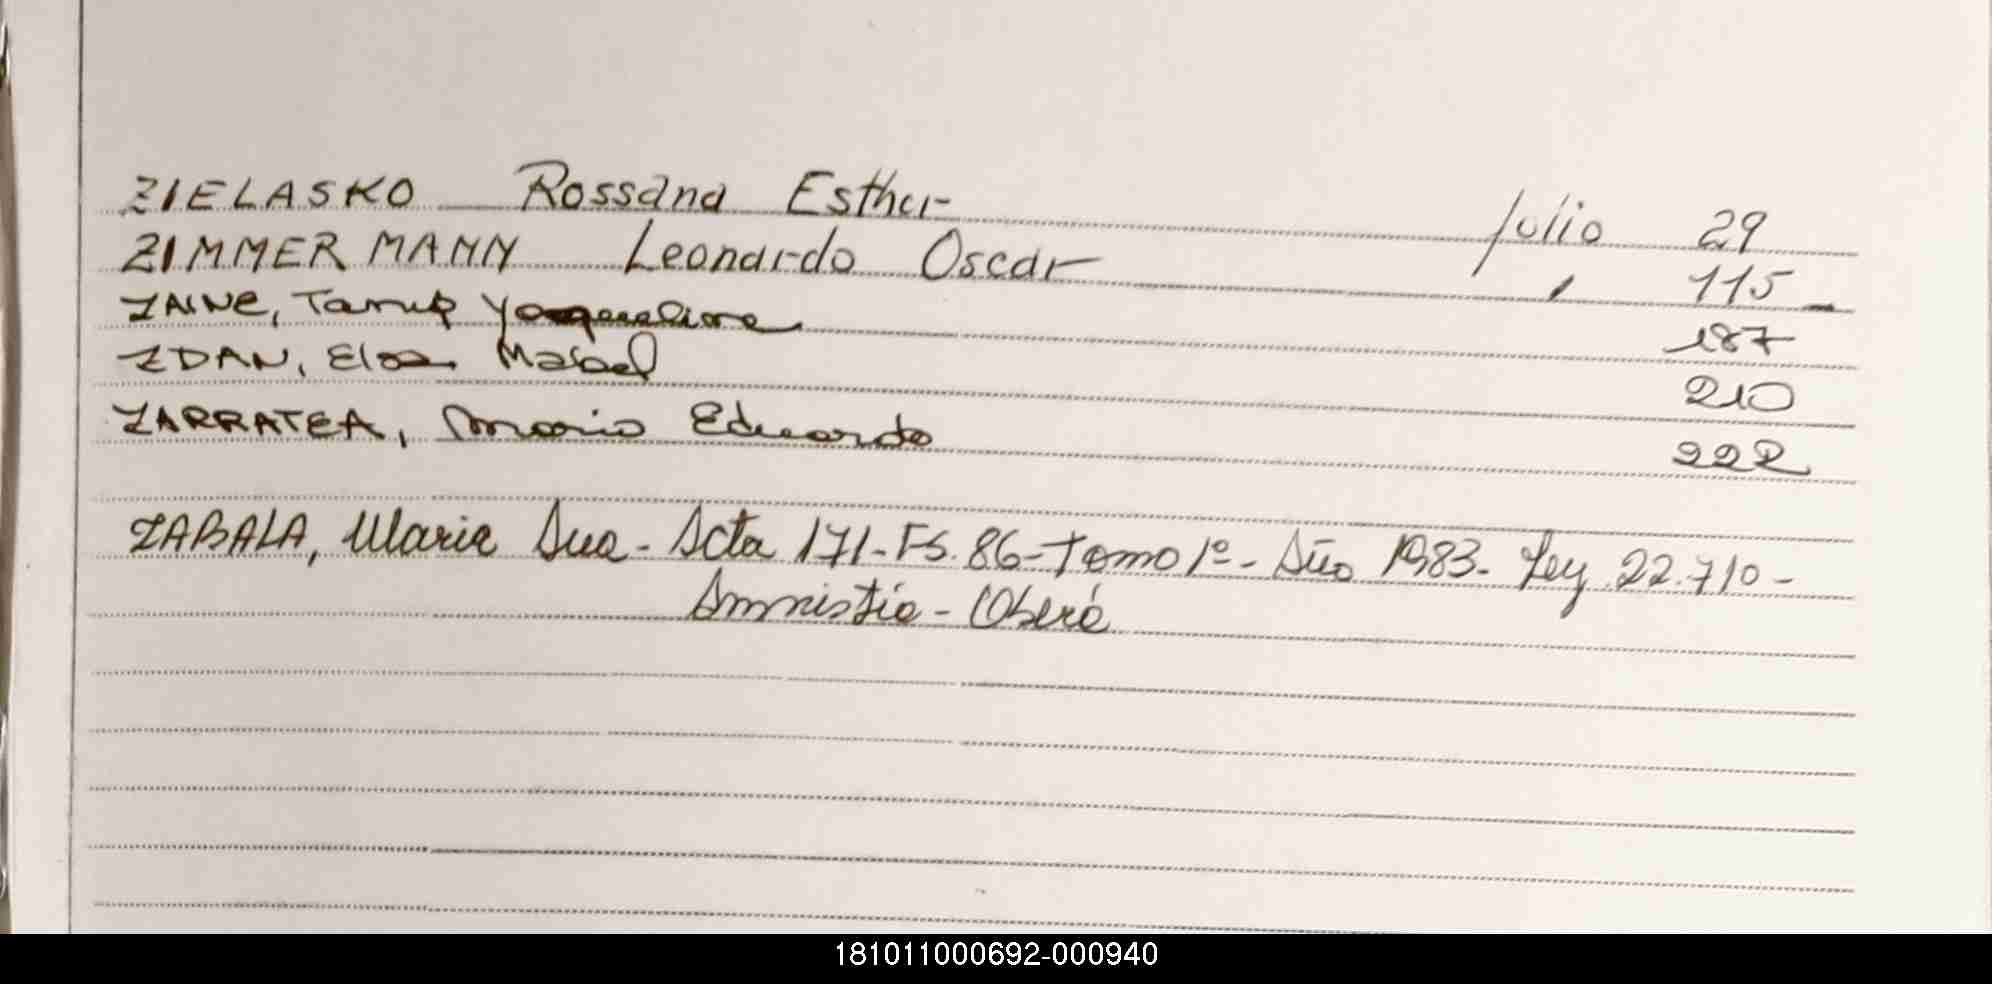 ZIELASKO Rossana Esther Julio 29
ZIMMERMANN Leonardo Oscar " 115
ZAINE, Yaqueline 187
ZDAN, Elsa Mabel 210
ZARRATEA, Mario Eduardo 222
ZABALA, Maria Ana - Acta 171 - Fs. 86 - Tomo 1º - Año 1983 - Ley 22.710 -
Amnistia - Oberá
181011000692-000940